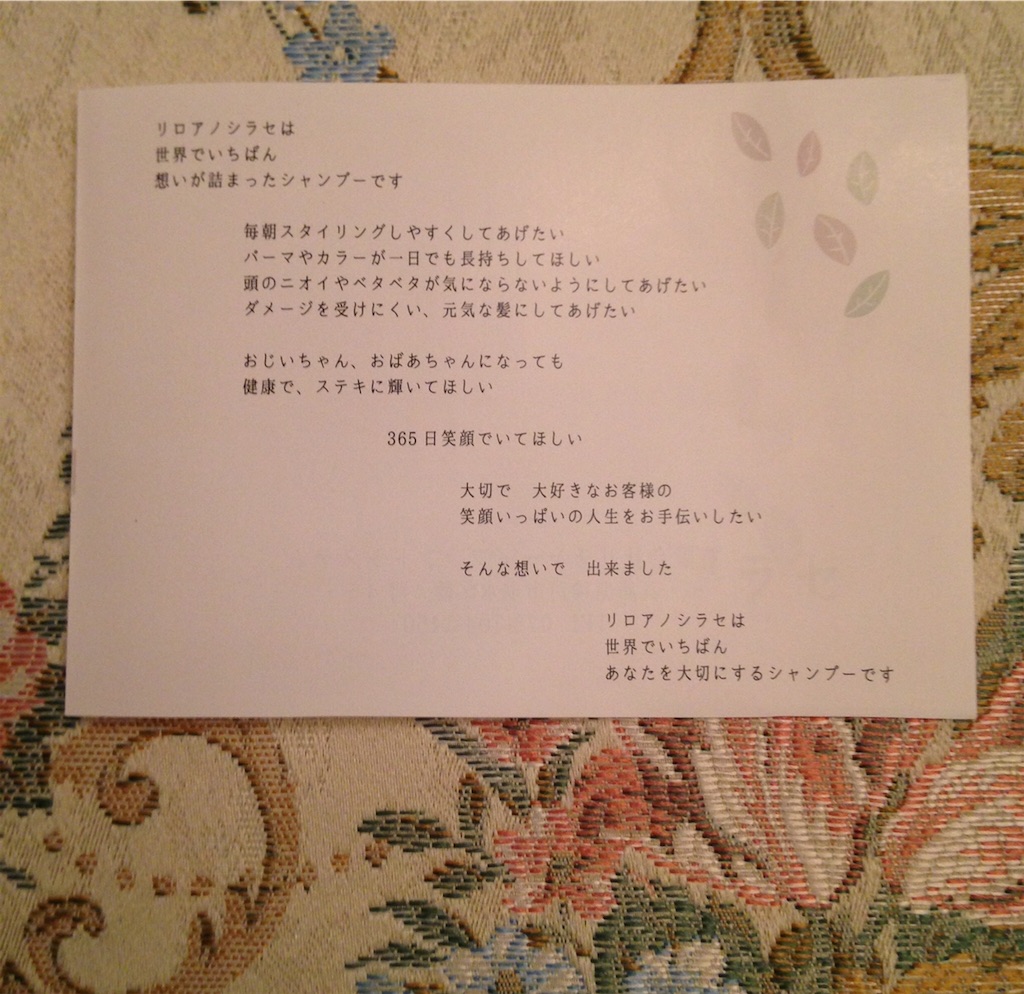 リロアノシラセは
世界でいちばん
想いが詰まったシャンプーです
毎朝スタイリングしやすくしてあげたい
パーマやカラーが一日でも長持ちしてほしい
頭のニオイやベタベタが気にならないようにしてあげたい
ダメージを受けにくい、元気な髪にしてあげたい
おじいちゃん、おばあちゃんになっても
健康で、ステキに輝いてほしい
365日笑顔でいてほしい
大切で　大好きなお客様の
笑顔いっぱいの人生をお手伝いしたい
そんな想いで　出来ました
リロアノシラセは
世界でいちばん
あなたを大切にするシャンプーです